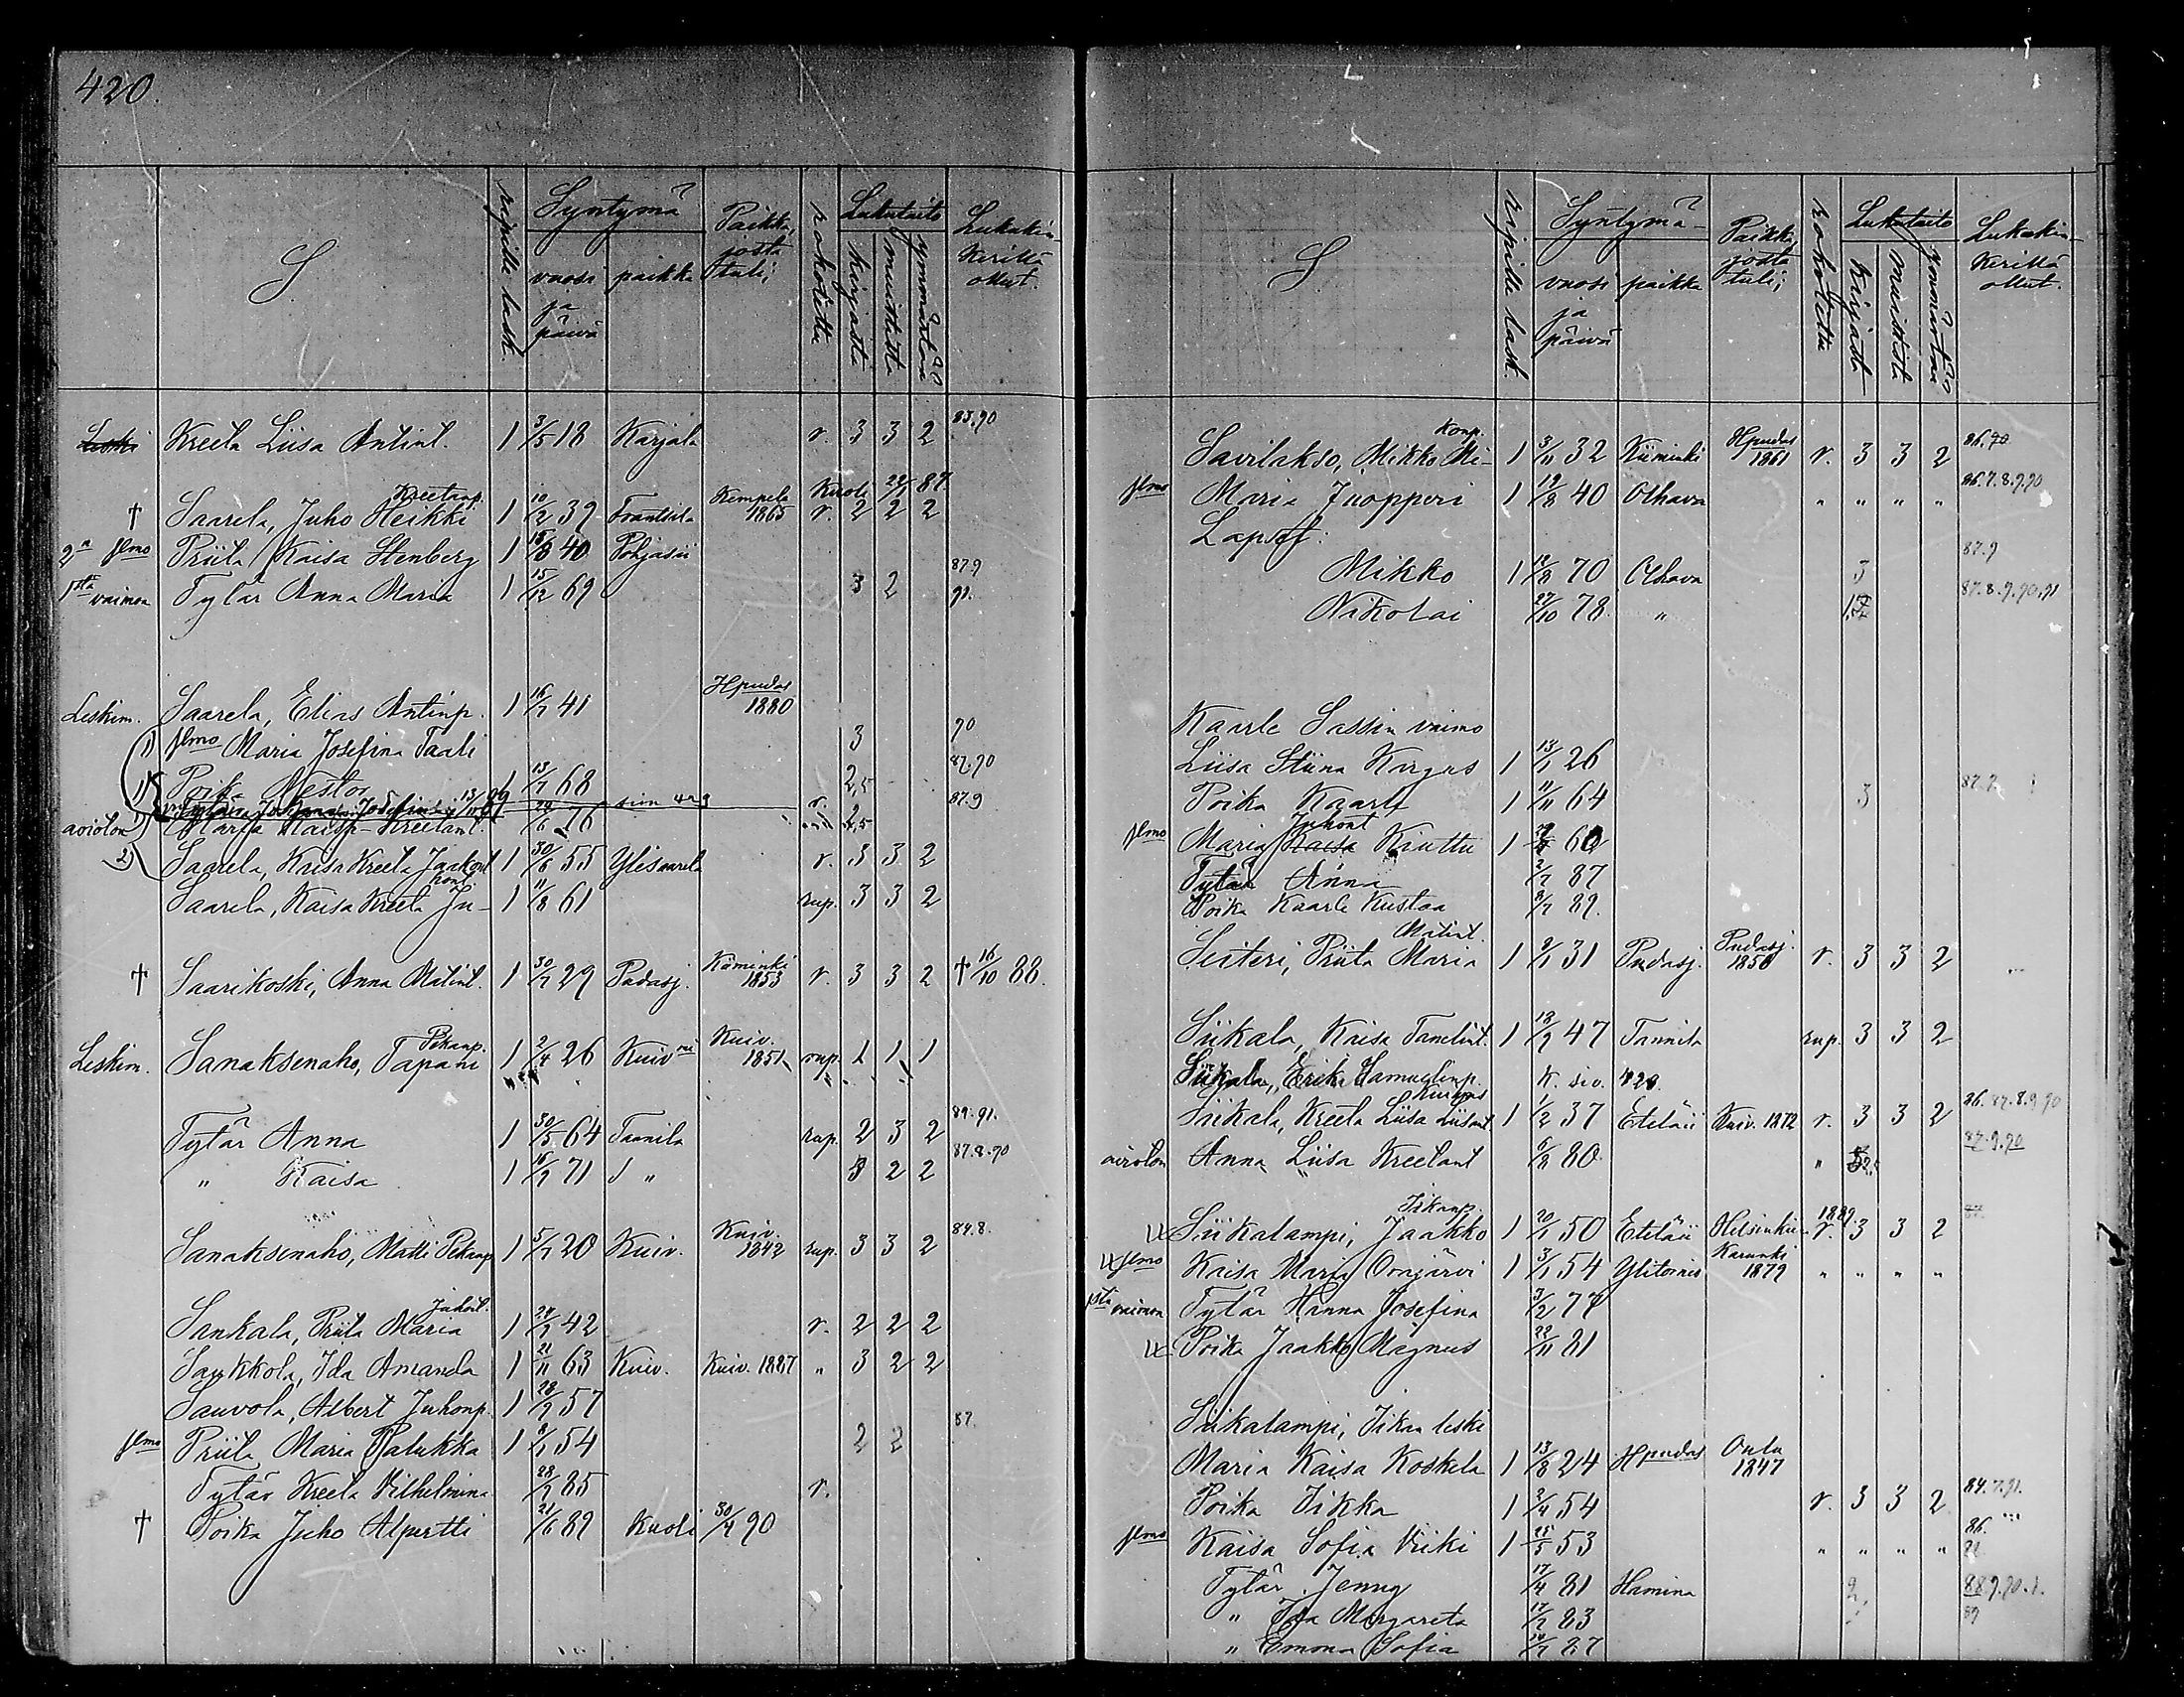 420.
S.
ripille lask.
Syntymä
vuosi ja päivä
paikka
Paikka, josta tuli;
rokotettu
Lukutaito
kirjasta
muistista
ymmärtää
Lukukinkerillä ollut.
Leski Kreeta Liisa Antint. 1 3/5 18 Karjala r. 3 3 2 83.90
† Saarela, Juho Heikki Kreetanp. 1 10/2 39 Frantsila Kempele 1865 Kuoli 87. r. 2 2 2
2n flmo Priita Kaisa Stenberg 1 40 Pohjasii
1sta vaimon Tytär Anna Maria 1 15/12 69 3 2 87.9 91.
Leskim. Saarela, Elias Antinp. 1 16/7 41 Hpudas 1880
1) flmo Maria Josefina Taali 3 90
Poika Nestor 1 13/7 68 2,5 87.90
siv. 423 r. 87.9
avioton Maria Kaisa Kreetant. 24/6 76 2,5
2) Saarela, Kaisa Kreeta Jaakont. 1 30/6 55 Ylisaarela r. 3 3 2
Saarela, Kaisa Kreeta Juhont. 1 11/8 61 rup. 3 3 2
† Saarikoski, Anna Matint. 1 30/7 29 Pudasj. Kiiminki 1853 r. 3 3 2 † 16/10 88.
Leskim. Sanaksenaho, Tapani Pekanp. 1 2/4 26 Kuivmi Kuiv. 1851 rup. 1 1 1
Tytär Anna 1 30/5 64 Tannila rup. 2 3 2 89.91.
" Kaisa 1 16/7 71 " 3 2 2 87.8.90
Sanaksenaho, Matti Pekanp 1 5/7 20 Kuiv. Kuiv. 1842 rup. 3 3 2 84.8.
Sankala, Priita Maria Juhont. 1 24/7 42 r. 2 2 2
Saukkola, Ida Amanda 1 21/11 63 Kuiv. Kuiv. 1887 " 3 2 2
Sauvola, Albert Juhonp. 1 28/7 57
flmo Priita Maria Palukka 1 8/1 54 2 2 87.
Tytär Kreeta Vilhelmina 28/7 85 r.
† Poika Juho Alpertti 21/6 89 Kuoli 30/4 90
S
ripille lask.
Syntymä
vuosi ja päivä
paikka
Paikka, josta tuli;
rokotettu
Lukutaito
kirjasta
muistista
ymmärtää
Lukukinkerillä ollut.
Savilakso, Mikko Mikonp. 1 3/11 32 Kiiminki Hpudas 1861 r. 3 3 2 86.90
flmo Maria Juopperi 1 12/8 40 Olhava " " " " 86.7.8.9.90
Lapset:
Mikko 1 12/8 70 Olhava 3 87.9
Nikolai 27/10 78 " 87.8.9.90.91
Kaarle Sassin vaimo
Liisa Stiina Kargus 1 13/1 26
Poika Kaarle 1 11/11 64 3
flmo Maria Juhont Kaisa Kiuttu 1 60
Tytär Anna 2/7 87
Poika Kaarle Kustaa 8/7 89.
Seiteri, Priita Maria Matint. 1 9/1 31 Pudasj. Pudasj. 1850 r. 3 3 2
Siikala, Kaisa Tanelint. 1 18/9 47 Tannila rup. 3 3 2
Siikala, Erik Samuelinp. k. siv. 423.
Siikala, Kreeta Liisa Liisant 1 1/2 37 Eteläii Kuiv. 1872 r. 3 3 2 86.87.8.9.90
avioton Anna Liisa Kreetant 6/8 80. " 87.9.90
Siikalampi, Jaakko Iikanp. 1 20/1 50 Eteläii Helsinki 1889 r. 3 3 2
flmo Kaisa Maria Oonjärvi 1 3/1 54 Ylitornio Karunki 1879 " " " "
1sta vaimon Tytär Hanna Josefina 3/2 77
Poika Jaakko Magnus 22/11 81
Siikalampi, Iikan leski
Maria Kaisa Koskela 1 13/8 24 Hpudas Oulu 1847
Poika Iikka 1 2/4 54 r. 3 3 2 84.7.91.
flmo Kaisa Sofia Viiki 1 25/5 53 " " " " 86.
Tytär Jenny 17/4 81 Hamina 2 889.90.1.
" Ida Margareta 17/7 83 89
" Emma Sofia 87